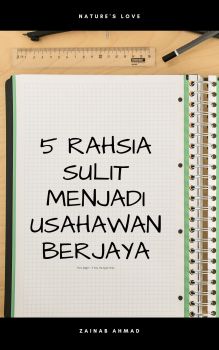 NATURE'S LOVE
5 RAHSIA
SULIT
MENJADI
USAHAWAN
BERJAYA
ZAINAB AHMAD